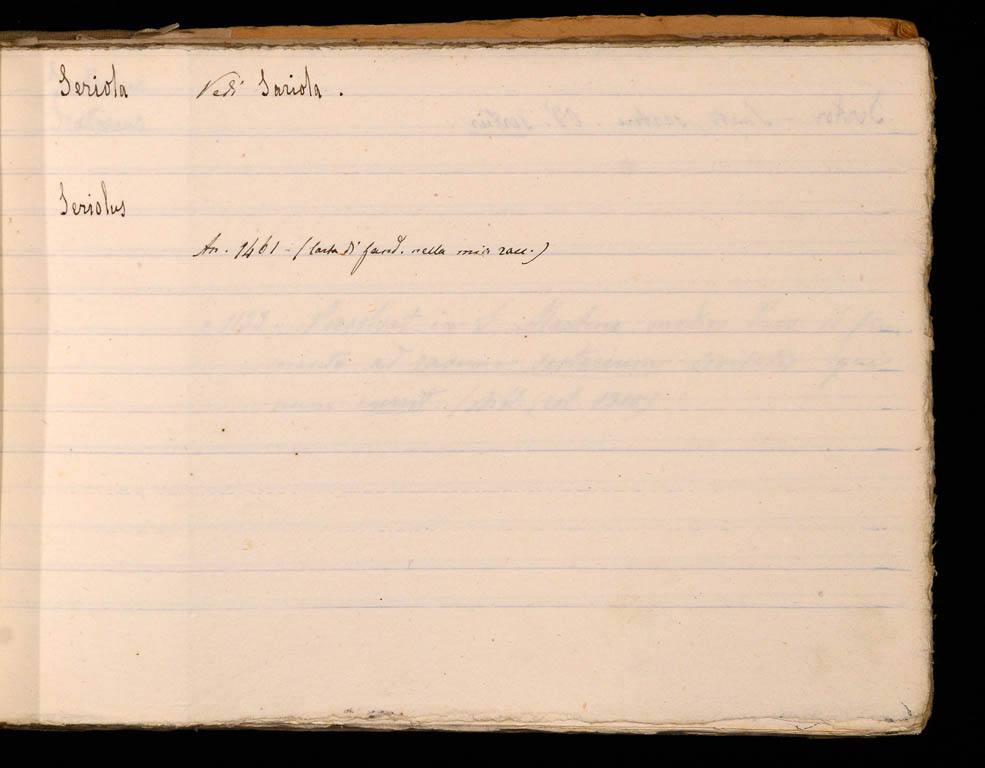 Seriola Vedi Sariola.
Seriolus
An. 1461 - (Carta di fand. nella mia racc.)